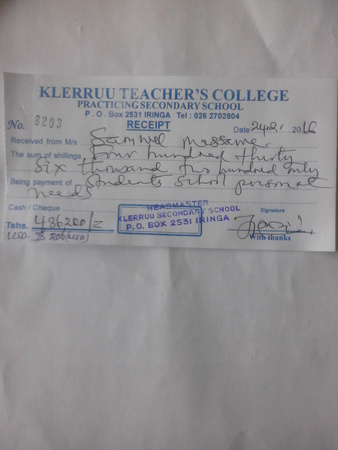 KLERRUU TEACHER'S COLLEGE
PRACTICING SECONDARY SCHOOL
P.O. Box 2531 IRINGA Tel: 026 2702804
No. 8203 RECEIPT Date 2016
Received from M/s Samwel Massawe
The sum of shillings Four hundred thirty
six thousand two hundred only
Being payment of students school personal
needs
Cash / Cheque
Tshs. 436200/=
USD $ 200
HEADMASTER
KLERRUU SECONDARY SCHOOL
P.O. BOX 2531 IRINGA
Signature
With thanks